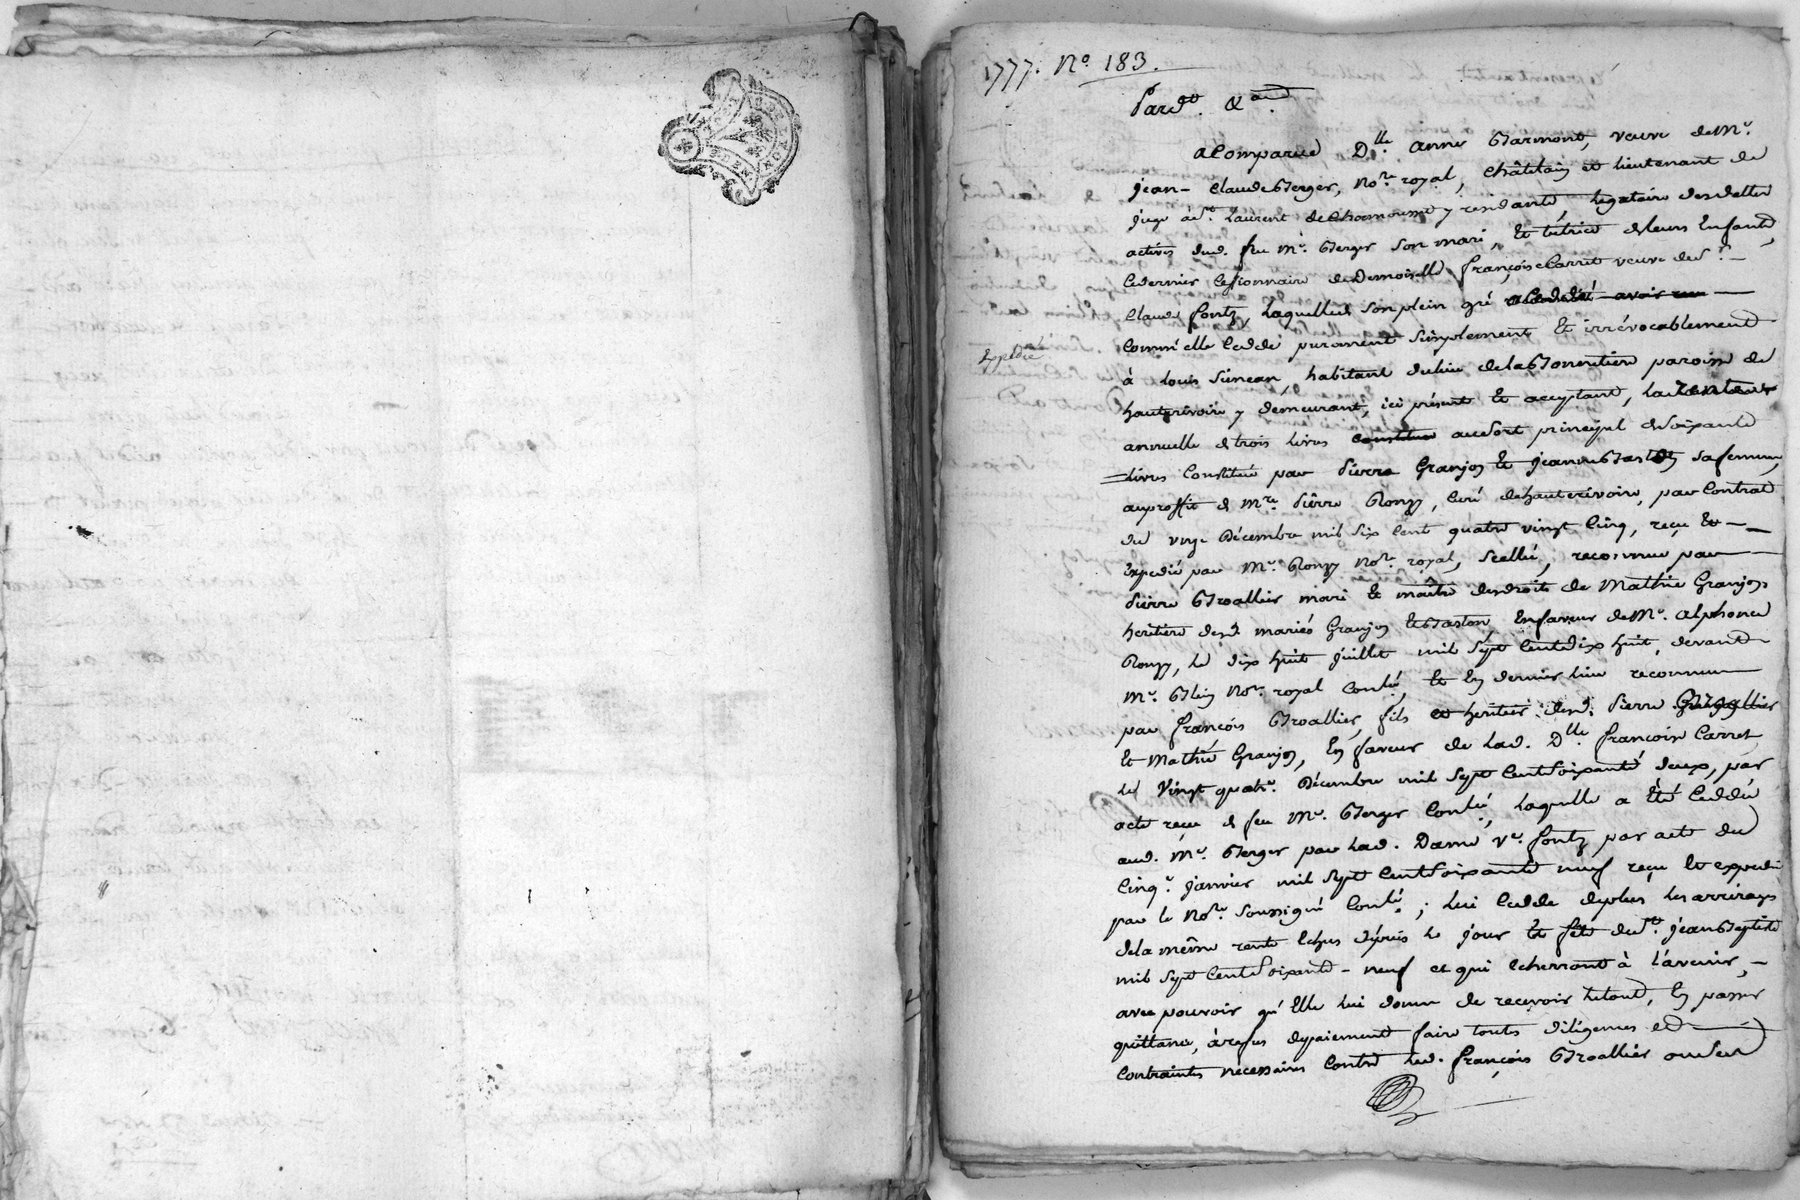 1777. No. 183.
Pard.t &a.
a Comparue Dlle anne Barmont, veuve de Me.
jean-Claude Berger, Nore. royal, Châtelain et lieutenant de
juge à St. Laurent de Chamousset y residante légataire des dettes
actives dud. feu Me. Berger son mari, et tutrice de leurs Enfants,
ce dernier Cessionnaire de Demoiselle françoise Carret veuve du Sr.
Claude fontz, laquelle de son plein gré a Cedé avoir
comm'elle Cedde purement simplement Et irrévocablement
Expédié
à Louis habitant du lieu de la paroisse de
hauterivoire y demeurant, ici présent Et acceptant, la rente
annuelle de trois livres constituée au sort principal de soixante
livres Constituée par Pierre Granjon Et jeanne Baston sa femme,
au proffit de Mre. Pierre Ronzy, Curé de hauterivoire, par Contrat
du vingt Décembre mil six Cent quatre vingt Cinq, reçu Et
Expedié par Me. Ronzy Nore. royal, Scellé, reconnue par
Pierre Broallier mari Et maître des droits de Mathie Granjon
heritière desd. mariés Granjon Et Baston, En faveur de Me. alphonce
Ronzy, le dix huit juillet mil sept Cent dix huit, devant
Me. Blein Nore. royal Conlé, Et En dernier lieu reconnue
par françois Broallier, fils et heritier desd. Pierre Broallier
Et Mathie Granjon, En faveur de lad. Dlle. francoise Carret
le Vingt quatre. Décembre mil sept Cent soixante deux, par
acte reçu dud. feu Me. Berger Conlé, laquelle a Eté Ceddée
aud. Me. Berger par lad. Dame Ve. fontz par acte du
Cinq. janvier mil sept Cent soixante neuf reçu Et expedié
par le Nore. soussigné Conlé.; lui Cedde de plus les arrirages
de la même rente Echus depuis le jour Et fête de St. jean Baptiste
mil sept Cent soixante-neuf et qui Echerront à l'avenir,
avec pouvoir qu'Elle lui donne de recevoir le tout, En passer
quittance, à refus de paiement faire toutes diligences et
contraintes nécessaires contre led. françois Broallier ou ses